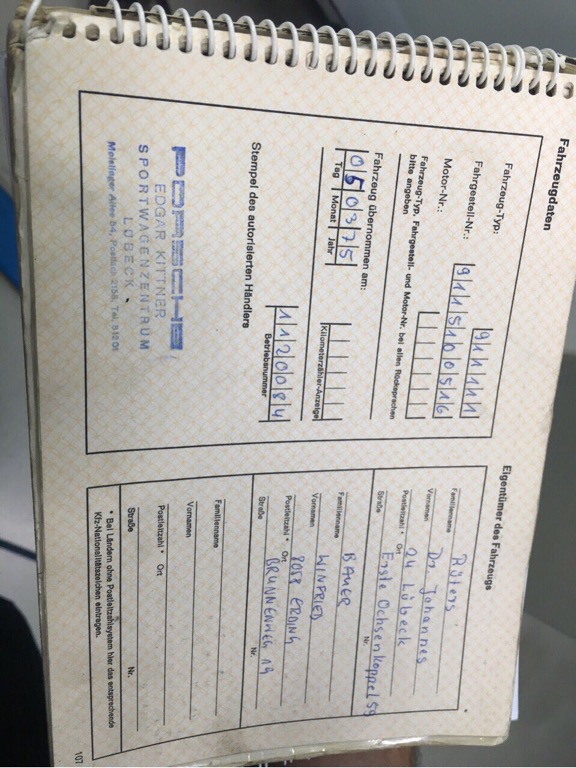 Fahrzeugdaten
Fahrzeug-Typ: 911111
Fahrgestell-Nr.: 9115100516
Motor-Nr.:
Fahrzeug-Typ, Fahrgestell- und Motor-Nr. bei allen Rücksprachen
bitte angeben
Fahrzeug übernommen am:
050375
Tag Monat Jahr
Kilometerzähler-Anzeige
1120084
Betriebsnummer
Stempel des autorisierten Händlers
PORSCHE
EDGAR KITTNER
SPORTWAGENZENTRUM
LÜBECK
Moislinger Allee 54, Postfach 2158, Tel.
Eigentümer des Fahrzeugs
Familienname Rüters
Vornamen Dr. Johannes
Postleitzahl * Ort 24 Lübeck
Straße Erste Ochsenkoppel 59 Nr.
Familienname BAUER
Vornamen WINFRIED
Postleitzahl * Ort 8058 ERDING
Straße BRUNNENWEG 19 Nr.
Familienname
Vornamen
Postleitzahl * Ort
Straße Nr.
* Bei Ländern ohne Postleitzahlsystem hier das entsprechende
Kfz-Nationalitätszeichen eintragen.
107